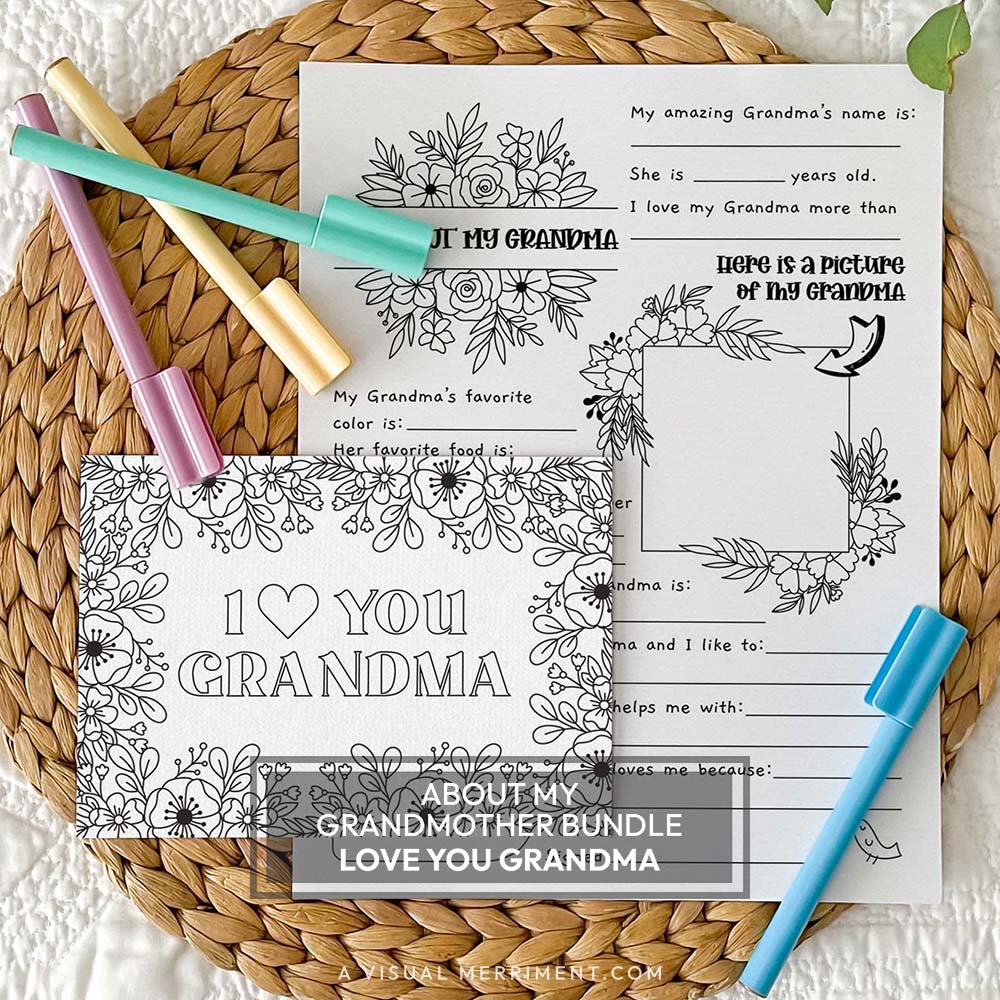 My amazing Grandma's name is:
She is ________ years old.
I love my Grandma more than
MY GRANDMA
Here is a picture
of my Grandma
My Grandma's favorite
color is:
Her favorite food is:
is:
and I like to:
helps me with:
loves me because:
I ♡ YOU
GRANDMA
ABOUT MY
GRANDMOTHER BUNDLE
LOVE YOU GRANDMA
A VISUAL MERRIMENT.COM